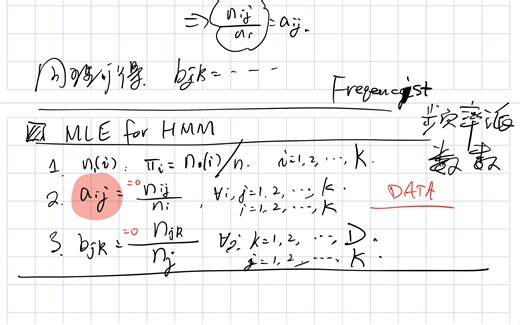 ⇒ n_ij / n_i = a_ij.
同理可得 b_jk = - - - -
Freqencist
频率派
数数
MLE for HMM
1. n_i(i): π_i = n_0(i)/n. i=1,2,...,K.
2. a_ij =0 n_ij / n_i, ∀i, j=1,2,...,K.
i=1,2,...,K
DATA
3. b_jk =0 n_jk / n_j ∀j, k=1,2,...,D.
j=1,2,...,K.